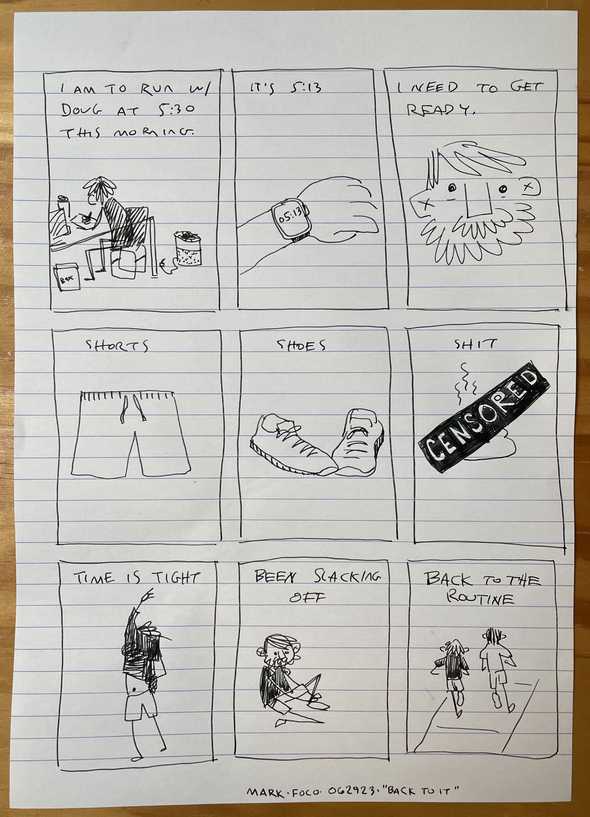 I AM TO RUN W/
DOUG AT 5:30
THIS MORNING.
BOX
IT'S 5:13
05:13
I NEED TO GET
READY.
SHORTS
SHOES
SHIT
CENSORED
TIME IS TIGHT
BEEN SLACKING
OFF
BACK TO THE
ROUTINE
MARK·FOCO·062923·"BACK TO IT"